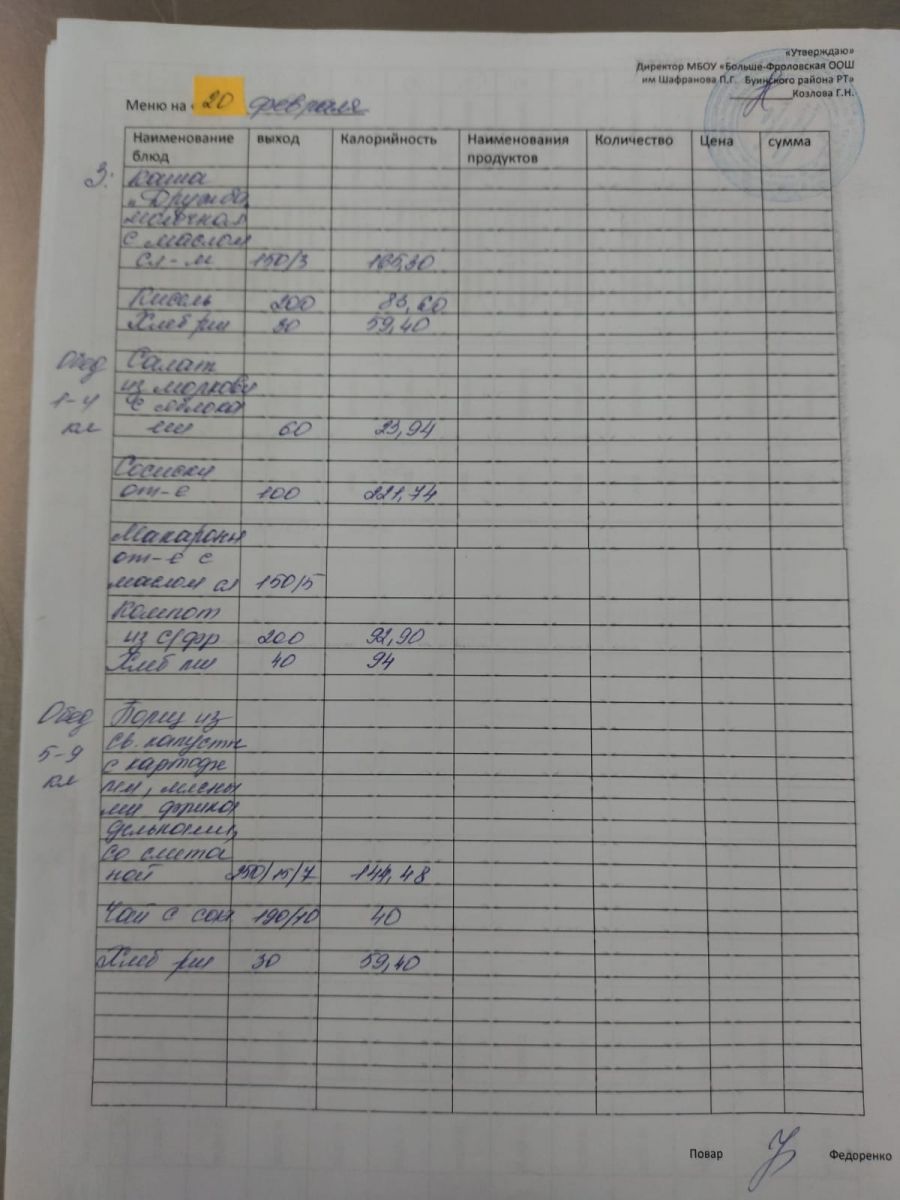 «Утверждаю»
Директор МБОУ «Больше-Фроловская ООШ
им Шафранова П.Г. Буинского района РТ»
Козлова Г.Н.
Меню на « 20 февраля
Наименование блюд выход Калорийность Наименования продуктов Количество Цена сумма
З: каша
„Дружба
молочная
с маслом
сл-м 150/3 165,30
Кисель 200 83,60
Хлеб рж 30 59,40
Обед Салат
из моркови
1-4 с яблока
кл ми 60 23,94
Сосиски
от-е 100 221,74
Макароны
от-е с
маслом сл 150/5
Компот
из с/фр 200 92,90
Хлеб пш 40 94
Обед Борщ из
св. капусты
5-9 с картофе
кл лем, мясны
ми фрика
дельками,
со смета
ной 250/15/7 144,48
Чай с сах 190/10 40
Хлеб рж 30 59,40
Повар Федоренко